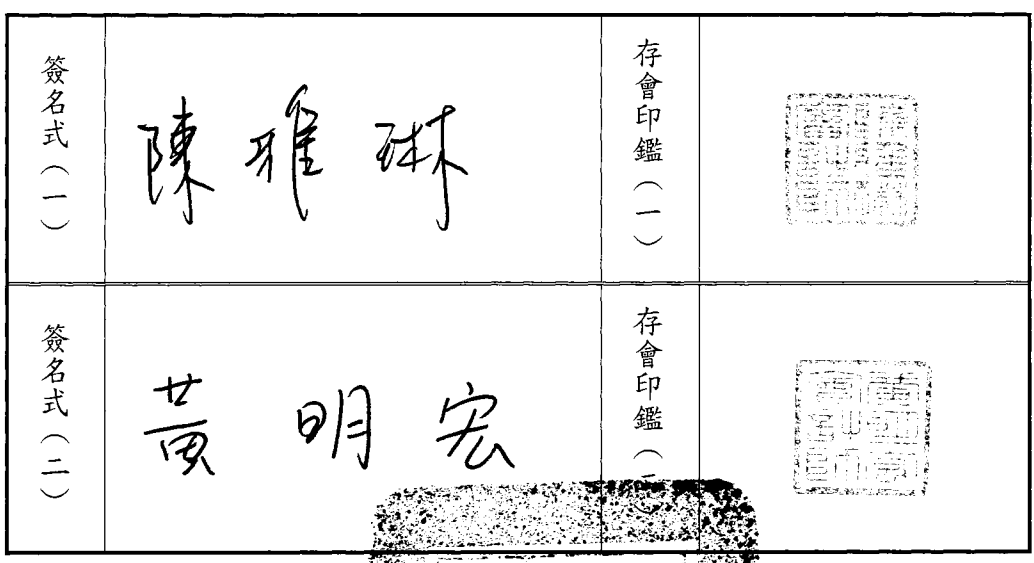 簽名式（一）
陳雅琳
存會印鑑（一）
簽名式（二）
黃明宏
存會印鑑（二）